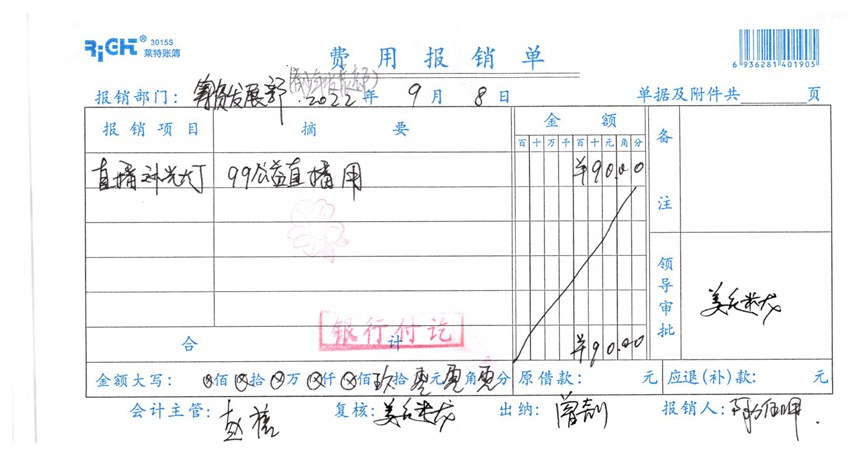 RiCH® 3015S
莱特账簿
费用报销单
6 936281 401905
报销部门: 筹资发展部 2022年 9月 8日 单据及附件共 页
报销项目 摘要 金额 备注
百 十 万 千 百 十 元 角 分
直播补光灯 99公益直播用 ¥90.00
领导审批
银行付讫
合计 ¥90.00
金额大写: ⊗佰⊗拾⊗万⊗仟⊗佰玖拾零元零角零分 原借款: 元 应退(补)款: 元
会计主管: 赵 复核: 出纳: 曾 报销人: